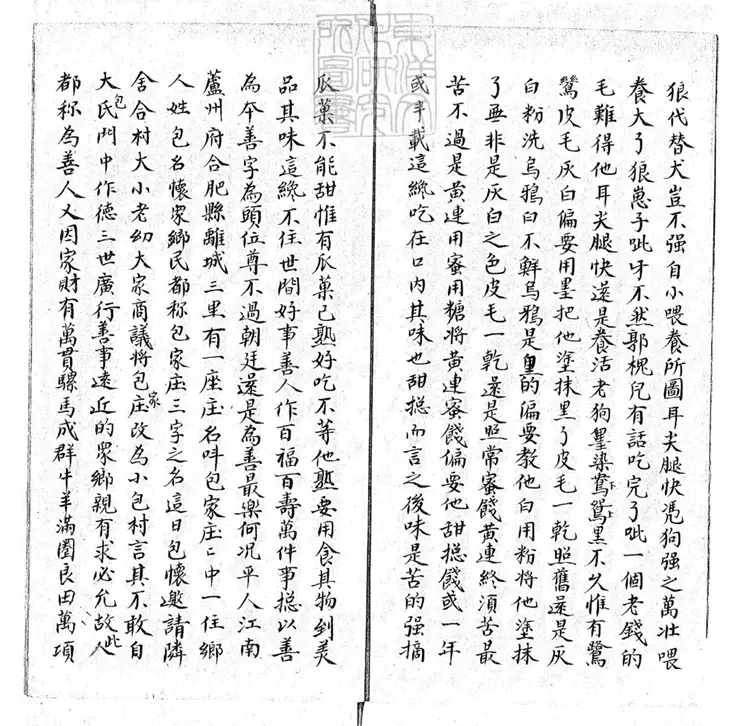 狼代替犬豈不强自小喂養所圖耳尖腿快憑狗强之萬壯喂
養大了狼崽子呲牙不然郭槐兒有話吃完了呲一個老錢的
毛難得他耳尖腿快還是養活老狗墨染鷥鷥黑不久惟有鷺
鷥皮毛灰白偏要用墨把他塗抹黑了皮毛一乾照舊還是灰
白粉洗烏鴉白不鮮烏鴉是黑的偏要教他白用粉將他塗抹
了並非是灰白之色皮毛一乾還是照常蜜餞黃連終須苦最
苦不過是黃連用蜜用糖將黃連蜜餞偏要他甜搃餞或一年
或半載這纔吃在口內其味也甜搃而言之後味是苦的强摘
瓜菓不能甜惟有瓜菓已熟好吃不等他熟要用食其物到美
品其味這纔不住世間好事善人作百福百壽萬件事搃以善
為本善字為頭位尊不過朝廷還是為善最樂何況平人江南
蘆州府合肥縣離城三里有一座庄名呌包家庄〻中一住鄉
人姓包名懷眾鄉民都称包家庄三字之名這日包懷邀請隣
舍合村大小老幼大家商議將包家庄改為小包村言其不敢自
大包氏門中作德三世廣行善事遠近的眾鄉親有求必允故此人
都称為善人又因家財有萬貫騾馬成群牛羊滿圈良田萬頃